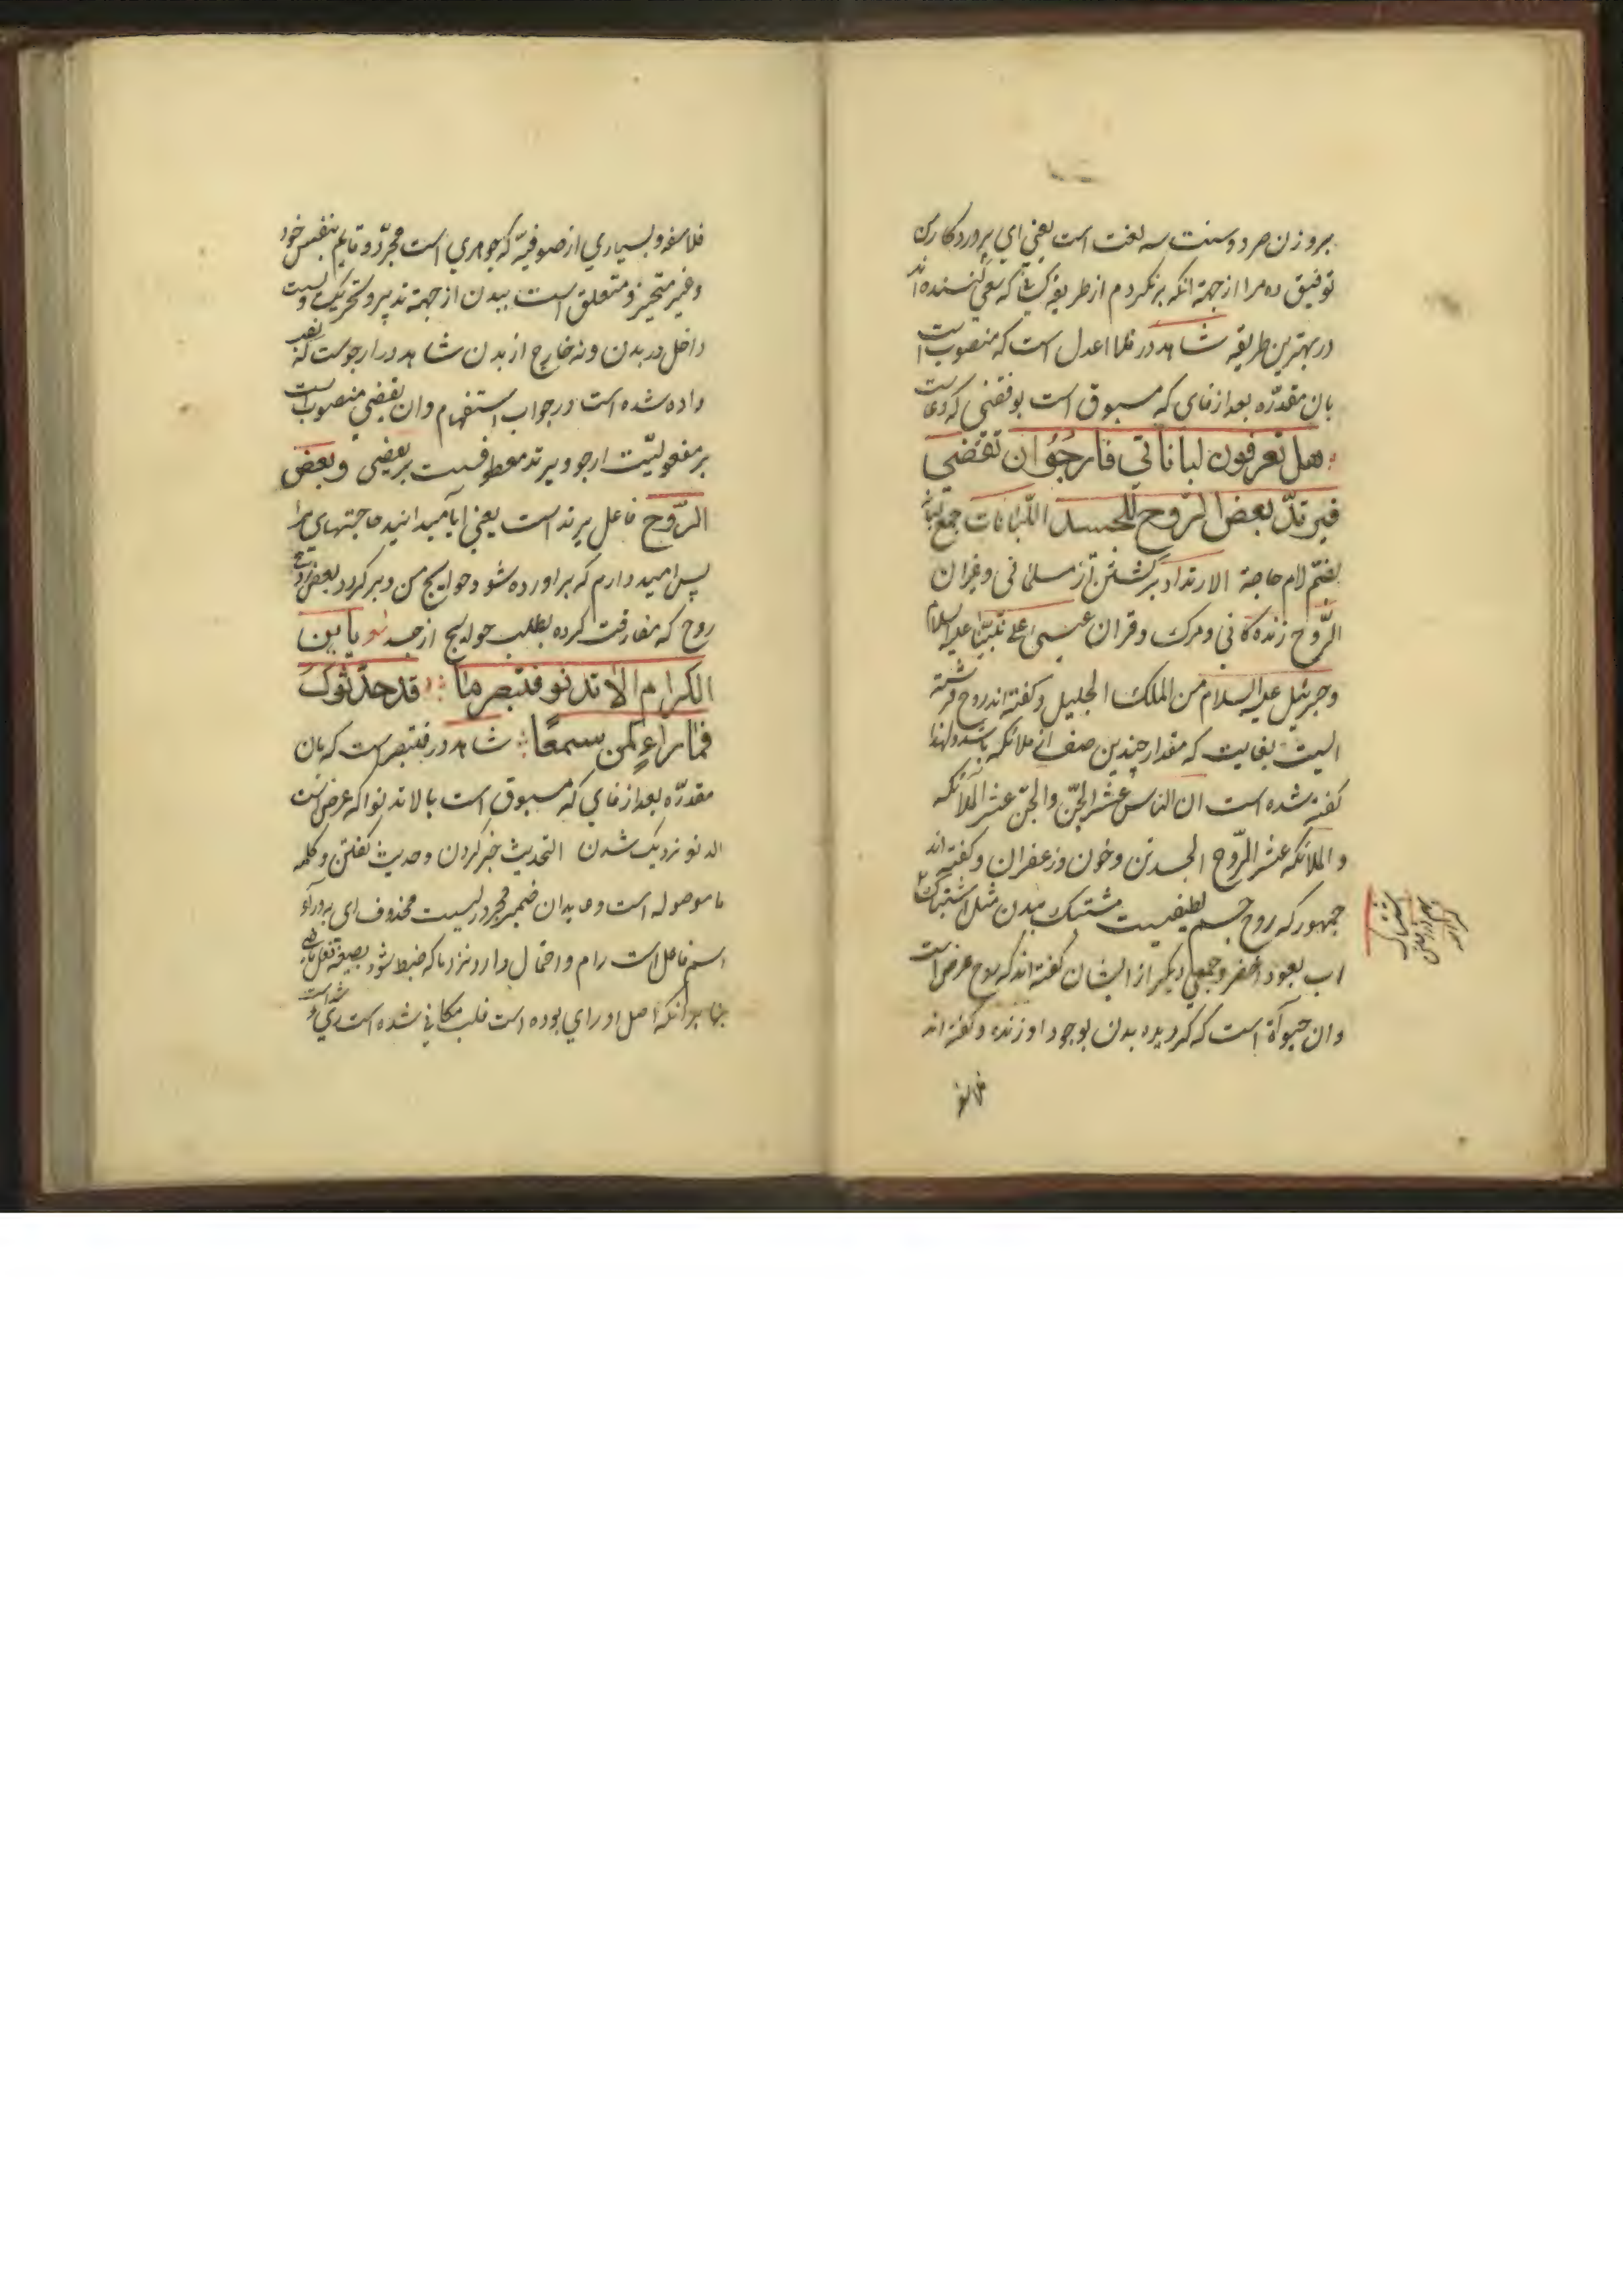 بروزن صرد و سنت سه لغت است یعنی ای پروردکار من
توفیق ده مرا از جهة انکه برنکردم از طریقه کسانی که سعی کننده اند
در بهترین طریقه شاهد در فلا اعدل است که منصوب است
بان مقدّره بعد از فای که مسبوق است بوفقنی که دعاست
هل تعرفون لباناتی فارجو ان تقضی
فیرتدّ بعض الرّوح للجسد اللّبانات جمع لبانة
بضمّ لام حاجة الارتداد برکشتن از مسلمانی و غیر ان
الرّوح زنده کانی و مرک و قران عیسی علی نبیّنا علیه السلام
و جبرئیل علیه السلام من الملک الجلیل و کفته اند روح فرشته
الیست بغایت که مقدار چندین صف از ملائکه باشد و لهذا
کفته شده است ان الناس عشر الجنّ والجنّ عشر الملائکه
و الملائکه عشر الرّوح الجسد تن و خون و زعفران و کفته اند
جمهور که روح جسم لطیفیست مشتبک ببدن مثل اشتباک
اب بعود اخضر و جمعی دیکر از ایشان کفته اند که روح عرض است
وان حیوة است که کردیده بدن بوجود او زنده و کفته اند
فلاسفه و بسیاری از صوفیّه که جوهری است مجرّد و قایم بنفس خود
و غیر متحیز و متعلق است ببدن از جهة تدبیر و تحریک و نیست
داخل در بدن و نه خارج از بدن شاهد در ارجوست که نصب
داده شده است در جواب استفهام و ان تقضی منصوب است
بر مفعولیّت ارجو و یرتد معطوفست بر تقضی و بعض
الرّوح فاعل یرتد است یعنی ایا میدانید حاجتهای مرا
پس امید دارم که براورده شود حوایج من و برکردد بعض
روح که مفارقت کرده بطلب حوایج از جسد یا بن
الکرام الا تدنو فتبصر ما قد حدّثوک
فما راءٍ کمن سمعا شاهد در فتبصر است که بان
مقدّره بعد از فای که مسبوق است بالا تدنوا که عرض است
الدنو نزدیک شدن التحدیث خبر کردن و حدیث کفتن و کلمه
ما موصوله است و عاید ان ضمیر مجروریست محذوف ای به و راءٍ
اسم فاعل است رام و احتمال دارد نزد ما که ضبط شود بصیغه فعل ماضی
بنا بر انکه اصل او رای بوده است قلب مکانی شده است